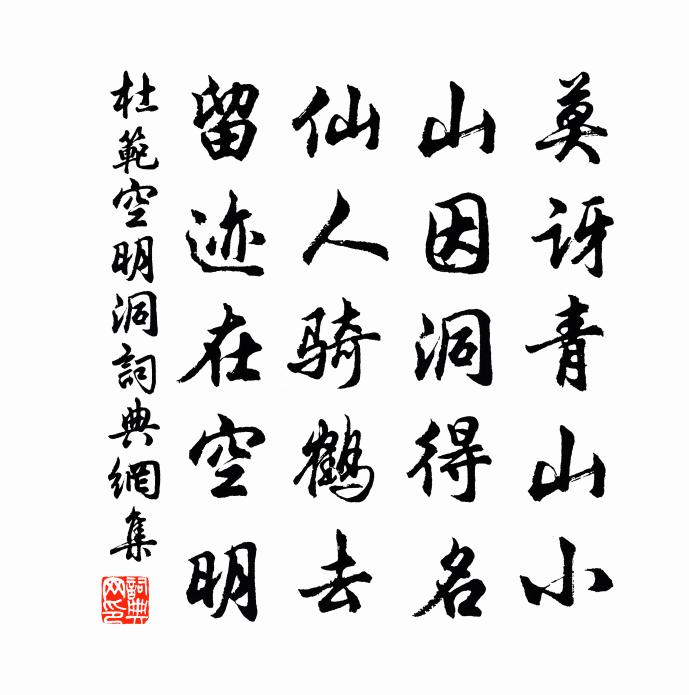 莫讶青山小
山因洞得名
仙人骑鹤去
留迹在空明
杜範空明洞詞典網集
詞典网印